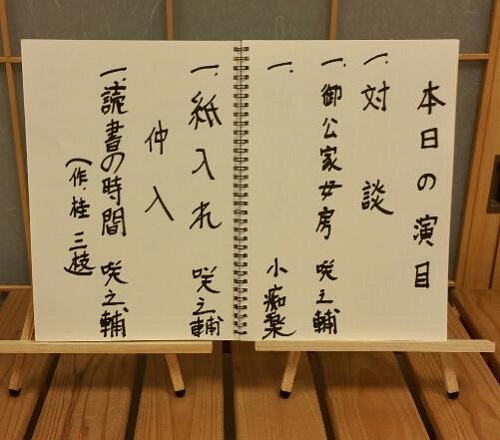 本日の演目
一、対談
一、御公家女房 咲之輔
一、 小痴楽
一、紙入れ 咲之輔
仲入
一、読書の時間 咲之輔
(作、桂三枝)